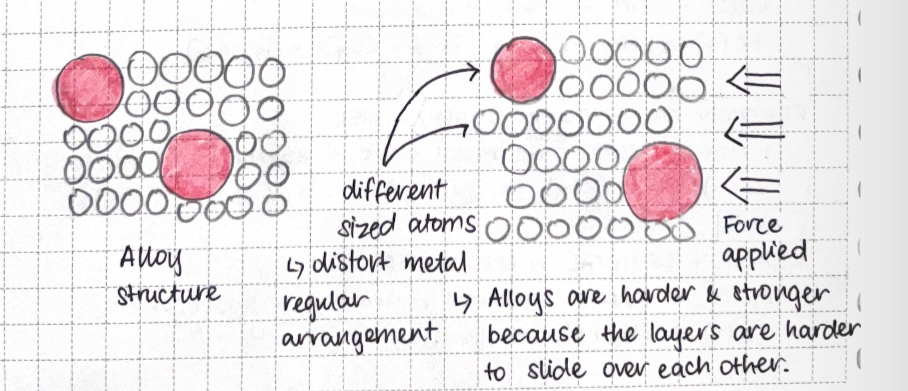 Alloy
structure
different
sized atoms
↳ distort metal
regular
arrangement
Force
applied
↳ Alloys are harder & stronger
because the layers are harder
to slide over each other.